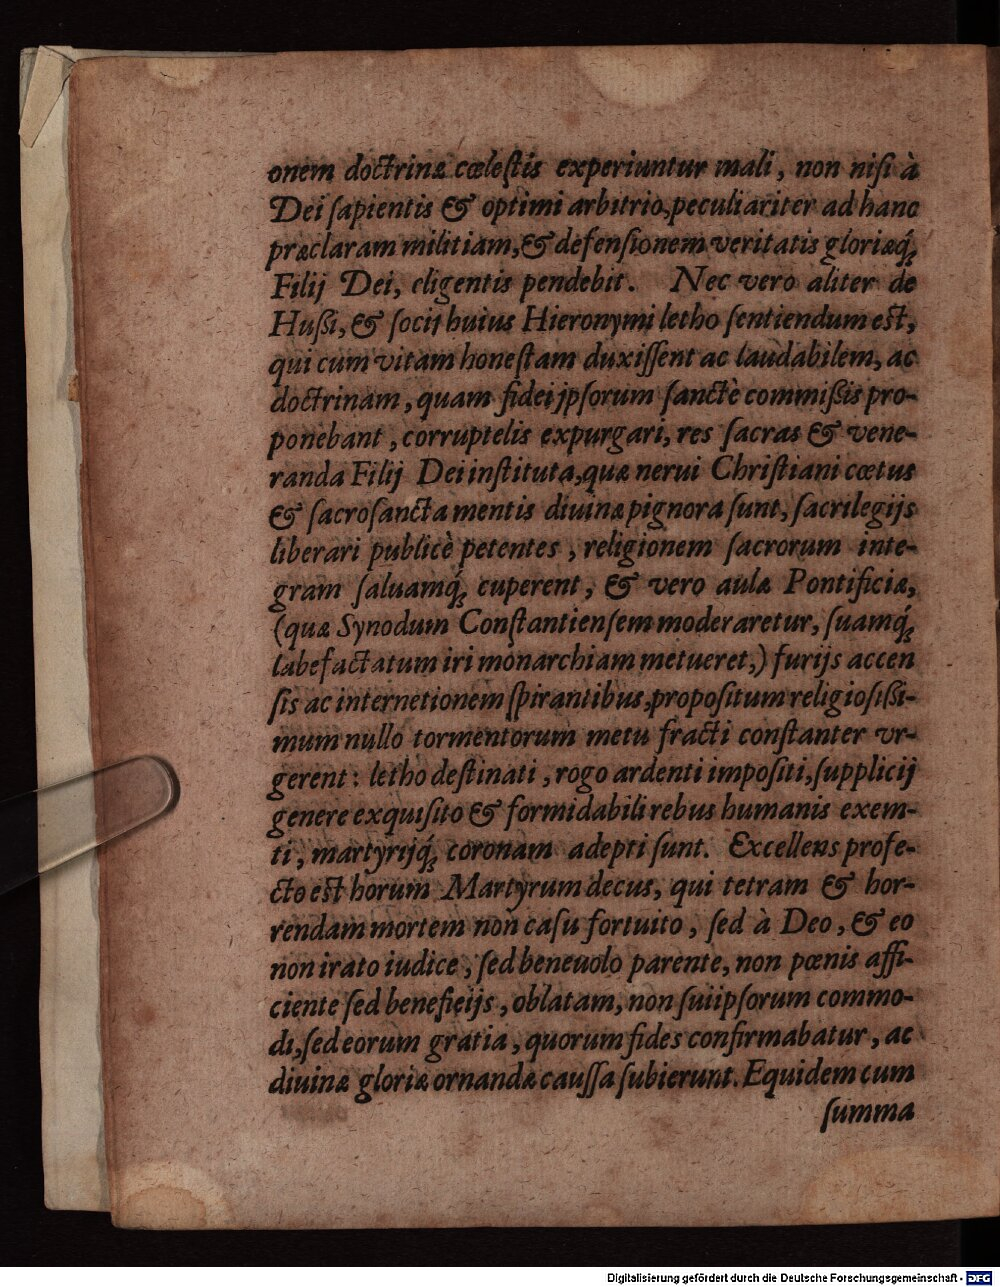 onem doctrinæ cœleſtis experiuntur mali, non niſi à
Dei ſapientis & optimi arbitrio, peculiariter ad hanc
præclaram militiam, & defenſionem veritatis gloriæq́;
Filij Dei, eligentis pendebit. Nec vero aliter de
Huſsi, & ſocij huius Hieronymi letho ſentiendum eſt,
qui cum vitam honeſtam duxiſſent ac laudabilem, ac
doctrinam, quam fidei jpſorum ſanctè commiſsis pro-
ponebant, corruptelis expurgari, res ſacras & vene-
randa Filij Dei inſtituta, quæ nerui Chriſtiani cœtus
& ſacroſancta mentis diuinæ pignora ſunt, ſacrilegijs
liberari publicè petentes, religionem ſacrorum inte-
gram ſaluamq́; cuperent, & vero aulæ Pontificiæ,
(quæ Synodum Conſtantienſem moderaretur, ſuamq́;
labefactatum iri monarchiam metueret,) furijs accen
ſis ac internetionem ſpirantibus, propoſitum religioſiſsi-
mum nullo tormentorum metu fracti conſtanter vr-
gerent: letho deſtinati, rogo ardenti impoſiti, ſupplicij
genere exquiſito & formidabili rebus humanis exem-
ti, martyrijq́; coronam adepti ſunt. Excellens profe-
cto eſt horum Martyrum decus, qui tetram & hor-
rendam mortem non caſu fortuito, ſed à Deo, & eo
non irato iudice, ſed beneuolo parente, non pœnis affi-
ciente ſed beneficijs, oblatam, non ſui ipſorum commo-
di, ſed eorum gratia, quorum fides confirmabatur, ac
diuinæ gloriæ ornandæ cauſſa ſubierunt. Equidem cum
ſumma
Digitalisierung gefördert durch die Deutsche Forschungsgemeinschaft - DFG